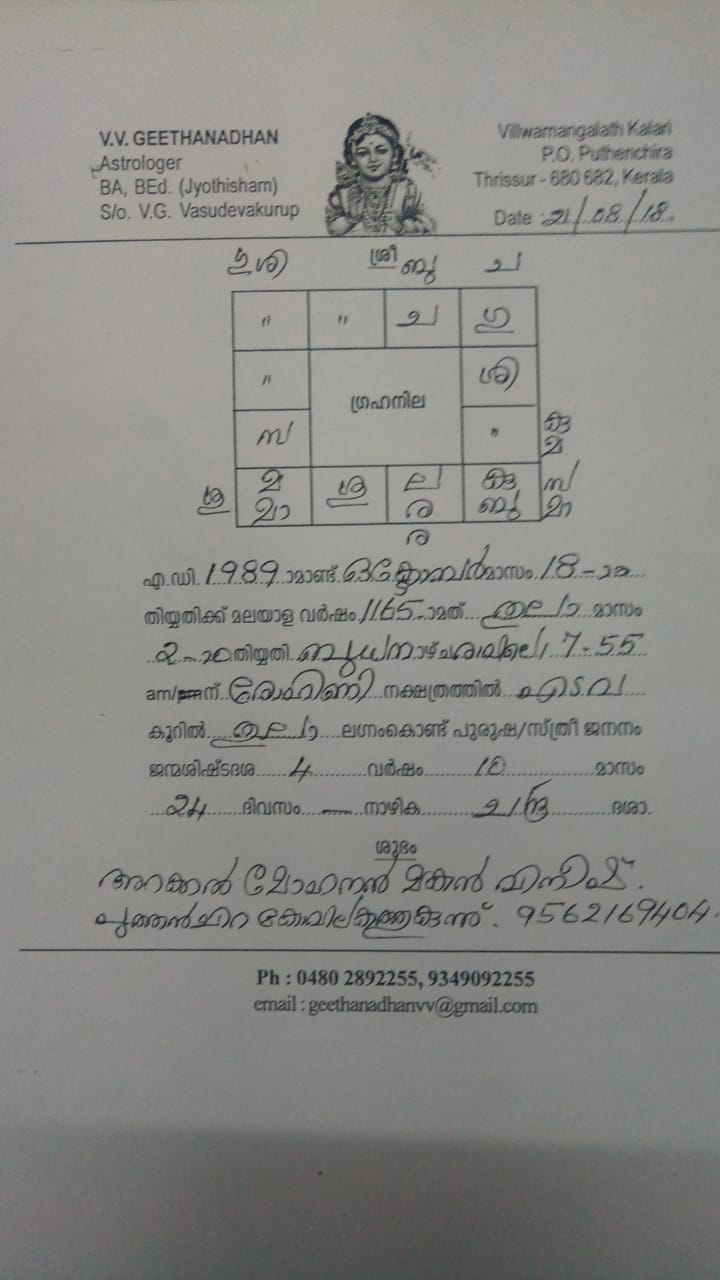 V.V. GEETHANADHAN
Astrologer
BA, BEd. (Jyothisham)
S/o. V.G. Vasudevakurup
Villwamangalath Kalari
P.O. Puthenchira
Thrissur - 680 682, Kerala
Date : 21/08/18
ശ്രീ
ഗു ശി ബു ച
" " ച ഗു
" ശി
ഗ്രഹനില
സ "
കു
മ
ശു മ ശു ല കു സ
മാ ര ബു മാ
ര
എ.ഡി. 1989 ാമാണ്ട് ഒക്ടോബർ മാസം 18-ാം
തിയ്യതിക്ക് മലയാള വർഷം 1165-ാമത് തുലാ മാസം
2-ാം തിയ്യതി ബുധനാഴ്ച രാവിലെ 7-55
am/pm ന് രോഹിണി നക്ഷത്രത്തിൽ എടവ
കൂറിൽ തുലാ ലഗ്നംകൊണ്ട് പുരുഷ/സ്ത്രീ ജനനം
ജന്മശിഷ്ടദശ 4 വർഷം 10 മാസം
24 ദിവസം — നാഴിക ച
ന്ദ്ര ദശാ.
ശുഭം
അറക്കൽ മോഹനൻ മകൻ
പുത്തൻചിറ 9562169404.
Ph : 0480 2892255, 9349092255
email : geethanadhanvv@gmail.com